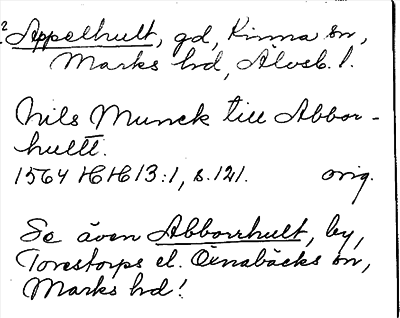 ? Appelhult, gd, Kinna sn,
Marks hd, Älvsb. l.
Nils Munck till Abbor-
hullt.
1564 HH 13:1, s. 121. orig.
Se även Abborrhult, by,
Torestorps el. Öxnabäcks sn,
Marks hd!